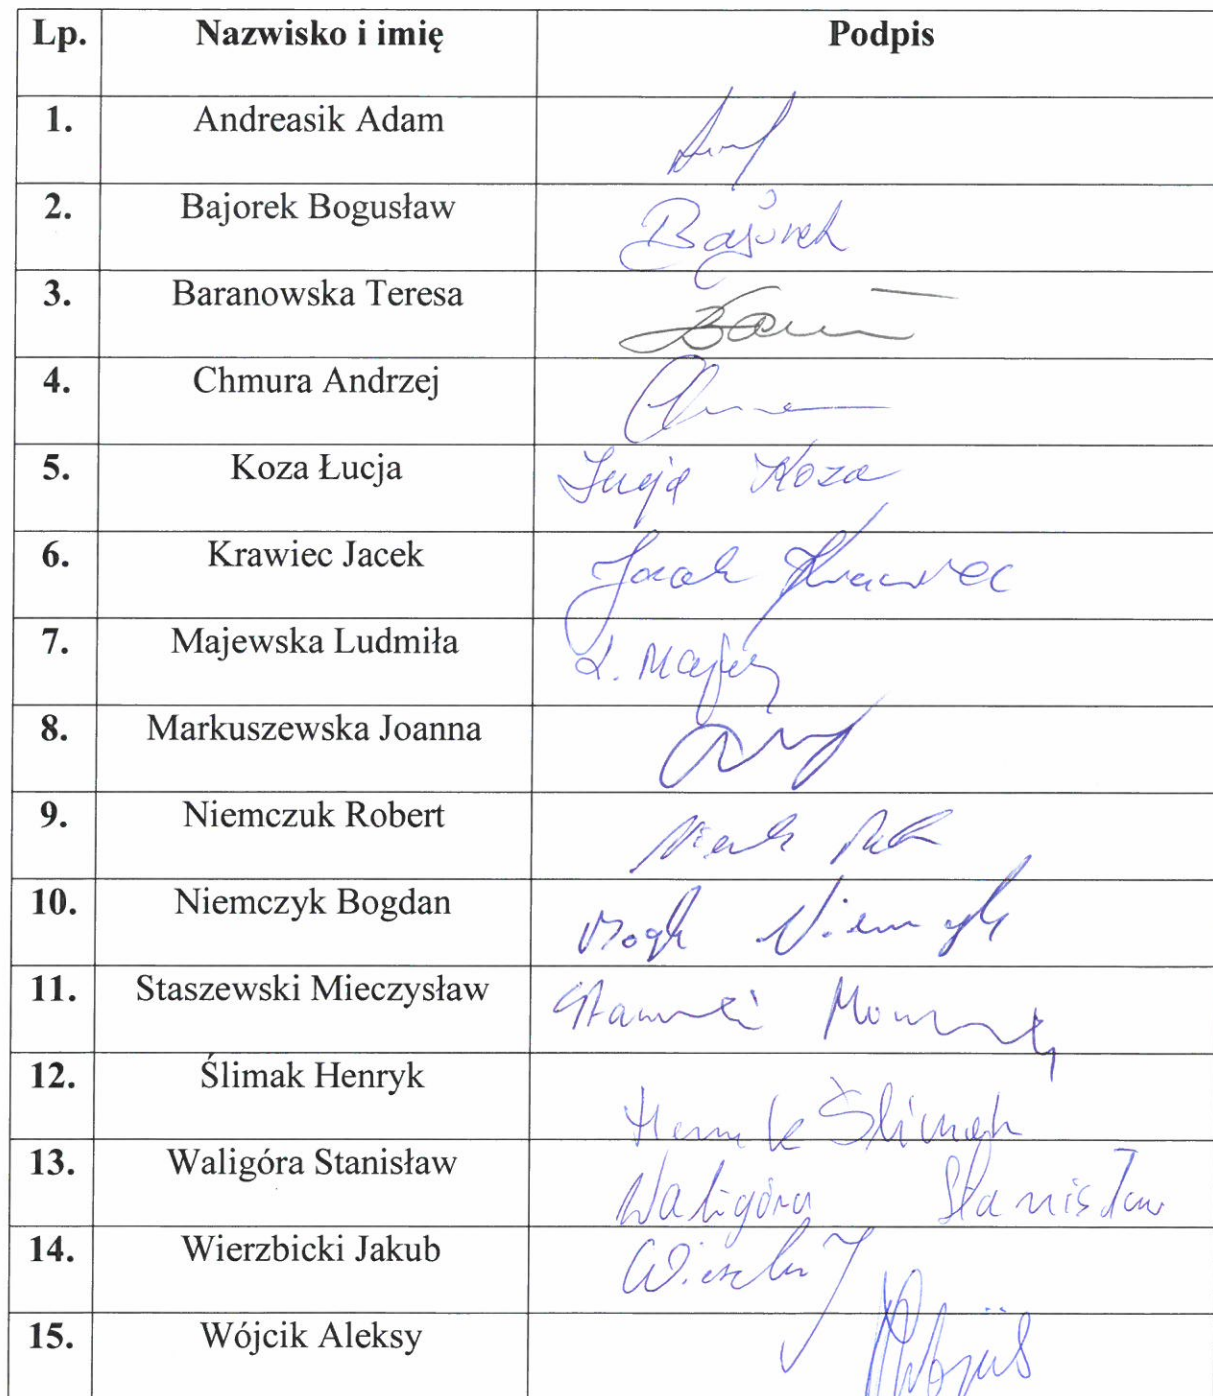 Lp. Nazwisko i imię Podpis
1. Andreasik Adam
2. Bajorek Bogusław Bajorek
3. Baranowska Teresa
4. Chmura Andrzej
5. Koza Łucja Łucja Koza
6. Krawiec Jacek Jacek Krawiec
7. Majewska Ludmiła L.
8. Markuszewska Joanna
9. Niemczuk Robert
10. Niemczyk Bogdan Niemczyk
11. Staszewski Mieczysław
12. Ślimak Henryk Henryk Ślimak
13. Waligóra Stanisław Waligóra Stanisław
14. Wierzbicki Jakub
15. Wójcik Aleksy